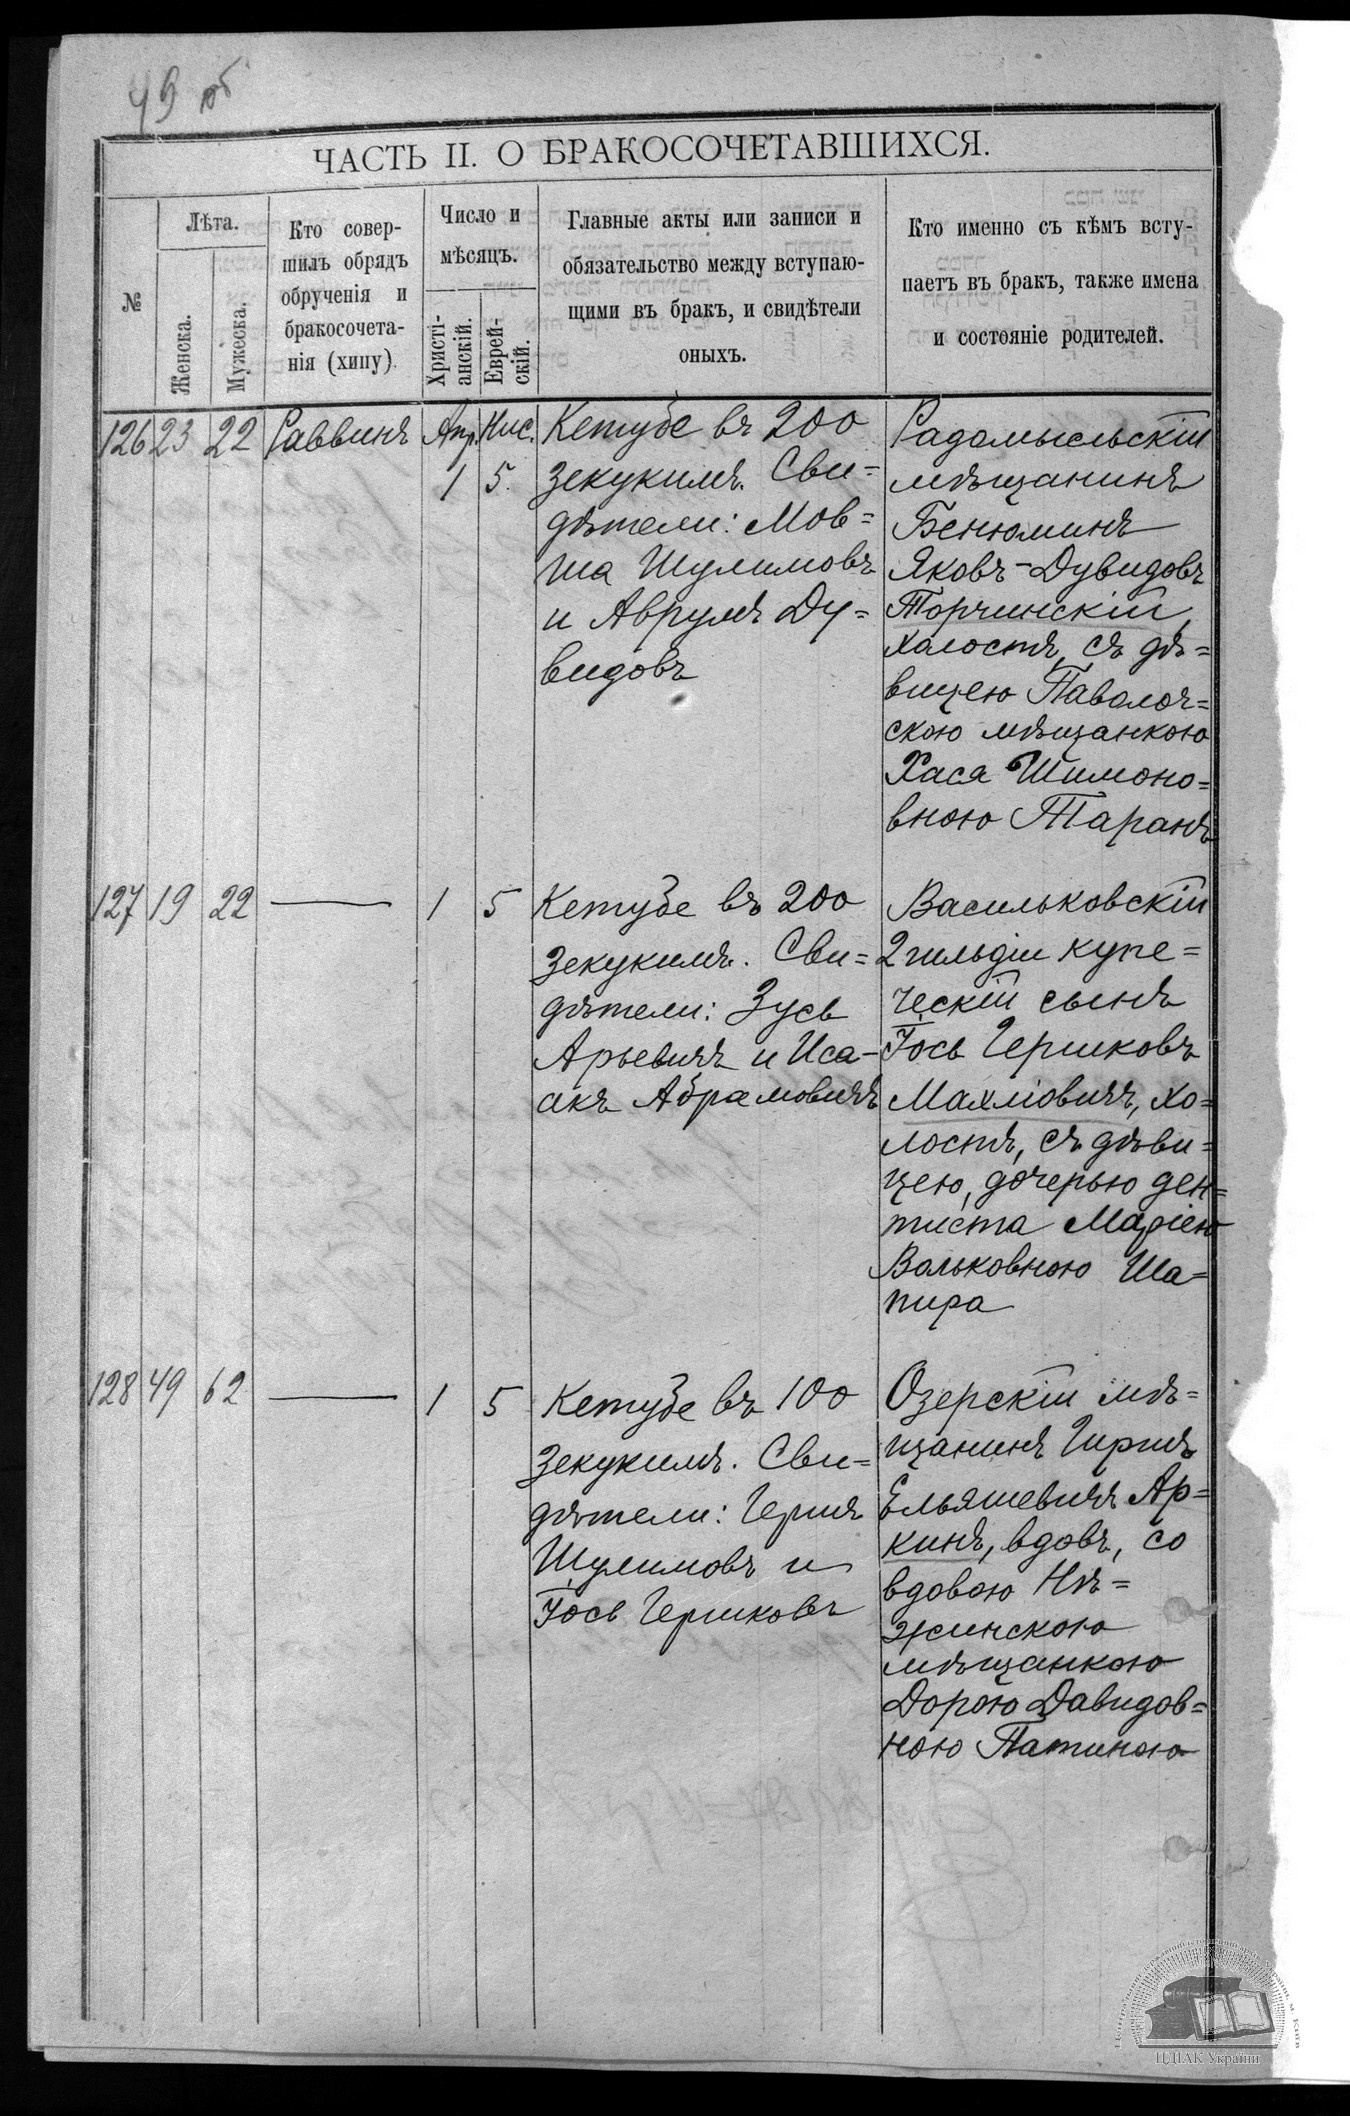 49 об
ЧАСТЬ II. О БРАКОСОЧЕТАВШИХСЯ.
№
Лѣта.
Женска.
Мужеска.
Кто совер-
шилъ обрядъ
обрученія и
бракосочета-
нія (хипу).
Число и
мѣсяцъ.
Христі-
анскій.
Еврей-
скій.
Главные акты или записи и
обязательство между вступаю-
щими въ бракъ, и свидѣтели
оныхъ.
Кто именно съ кѣмъ всту-
паетъ въ бракъ, также имена
и состояніе родителей.
126 23 22 Раввинъ Апр. Нис.
1 5.
Кетубе въ 200
зекукимъ. Сви=
дѣтели: Мов=
ша Шулимовъ
и Аврумъ Ду=
видовъ
Радомысльскій
мѣщанинъ
Бенюминъ
Яковъ-Дувидовъ
Торчинскій,
холостъ, съ дѣ=
вицею Паволоч=
скою мѣщанкою
Хася Шимоно=
вною Таранъ
127 19 22 — 1 5
Кетубе въ 200
зекукимъ. Сви=
дѣтели: Зусь
Арьевичъ и Иса-
акъ Абрамовичъ
Васильковскій
2 гильдіи купе=
ческій сынъ
Іось Гершковъ
Махліовичъ, хо=
лостъ, съ дѣви=
цею, дочерью ден=
тиста Маріею
Вольковною Ша=
пира
128 49 62 — 1 5
Кетубе въ 100
зекукимъ. Сви=
дѣтели: Гершъ
Шулимовъ и
Іось Гершковъ
Озерскій мѣ=
щанинъ Гиршъ
Ельяшевичъ Ар=
кинъ, вдовъ, со
вдовою Нѣ=
жинскою
мѣщанкою
Дорою Давидов=
ною Патиною
ЦДІАК України